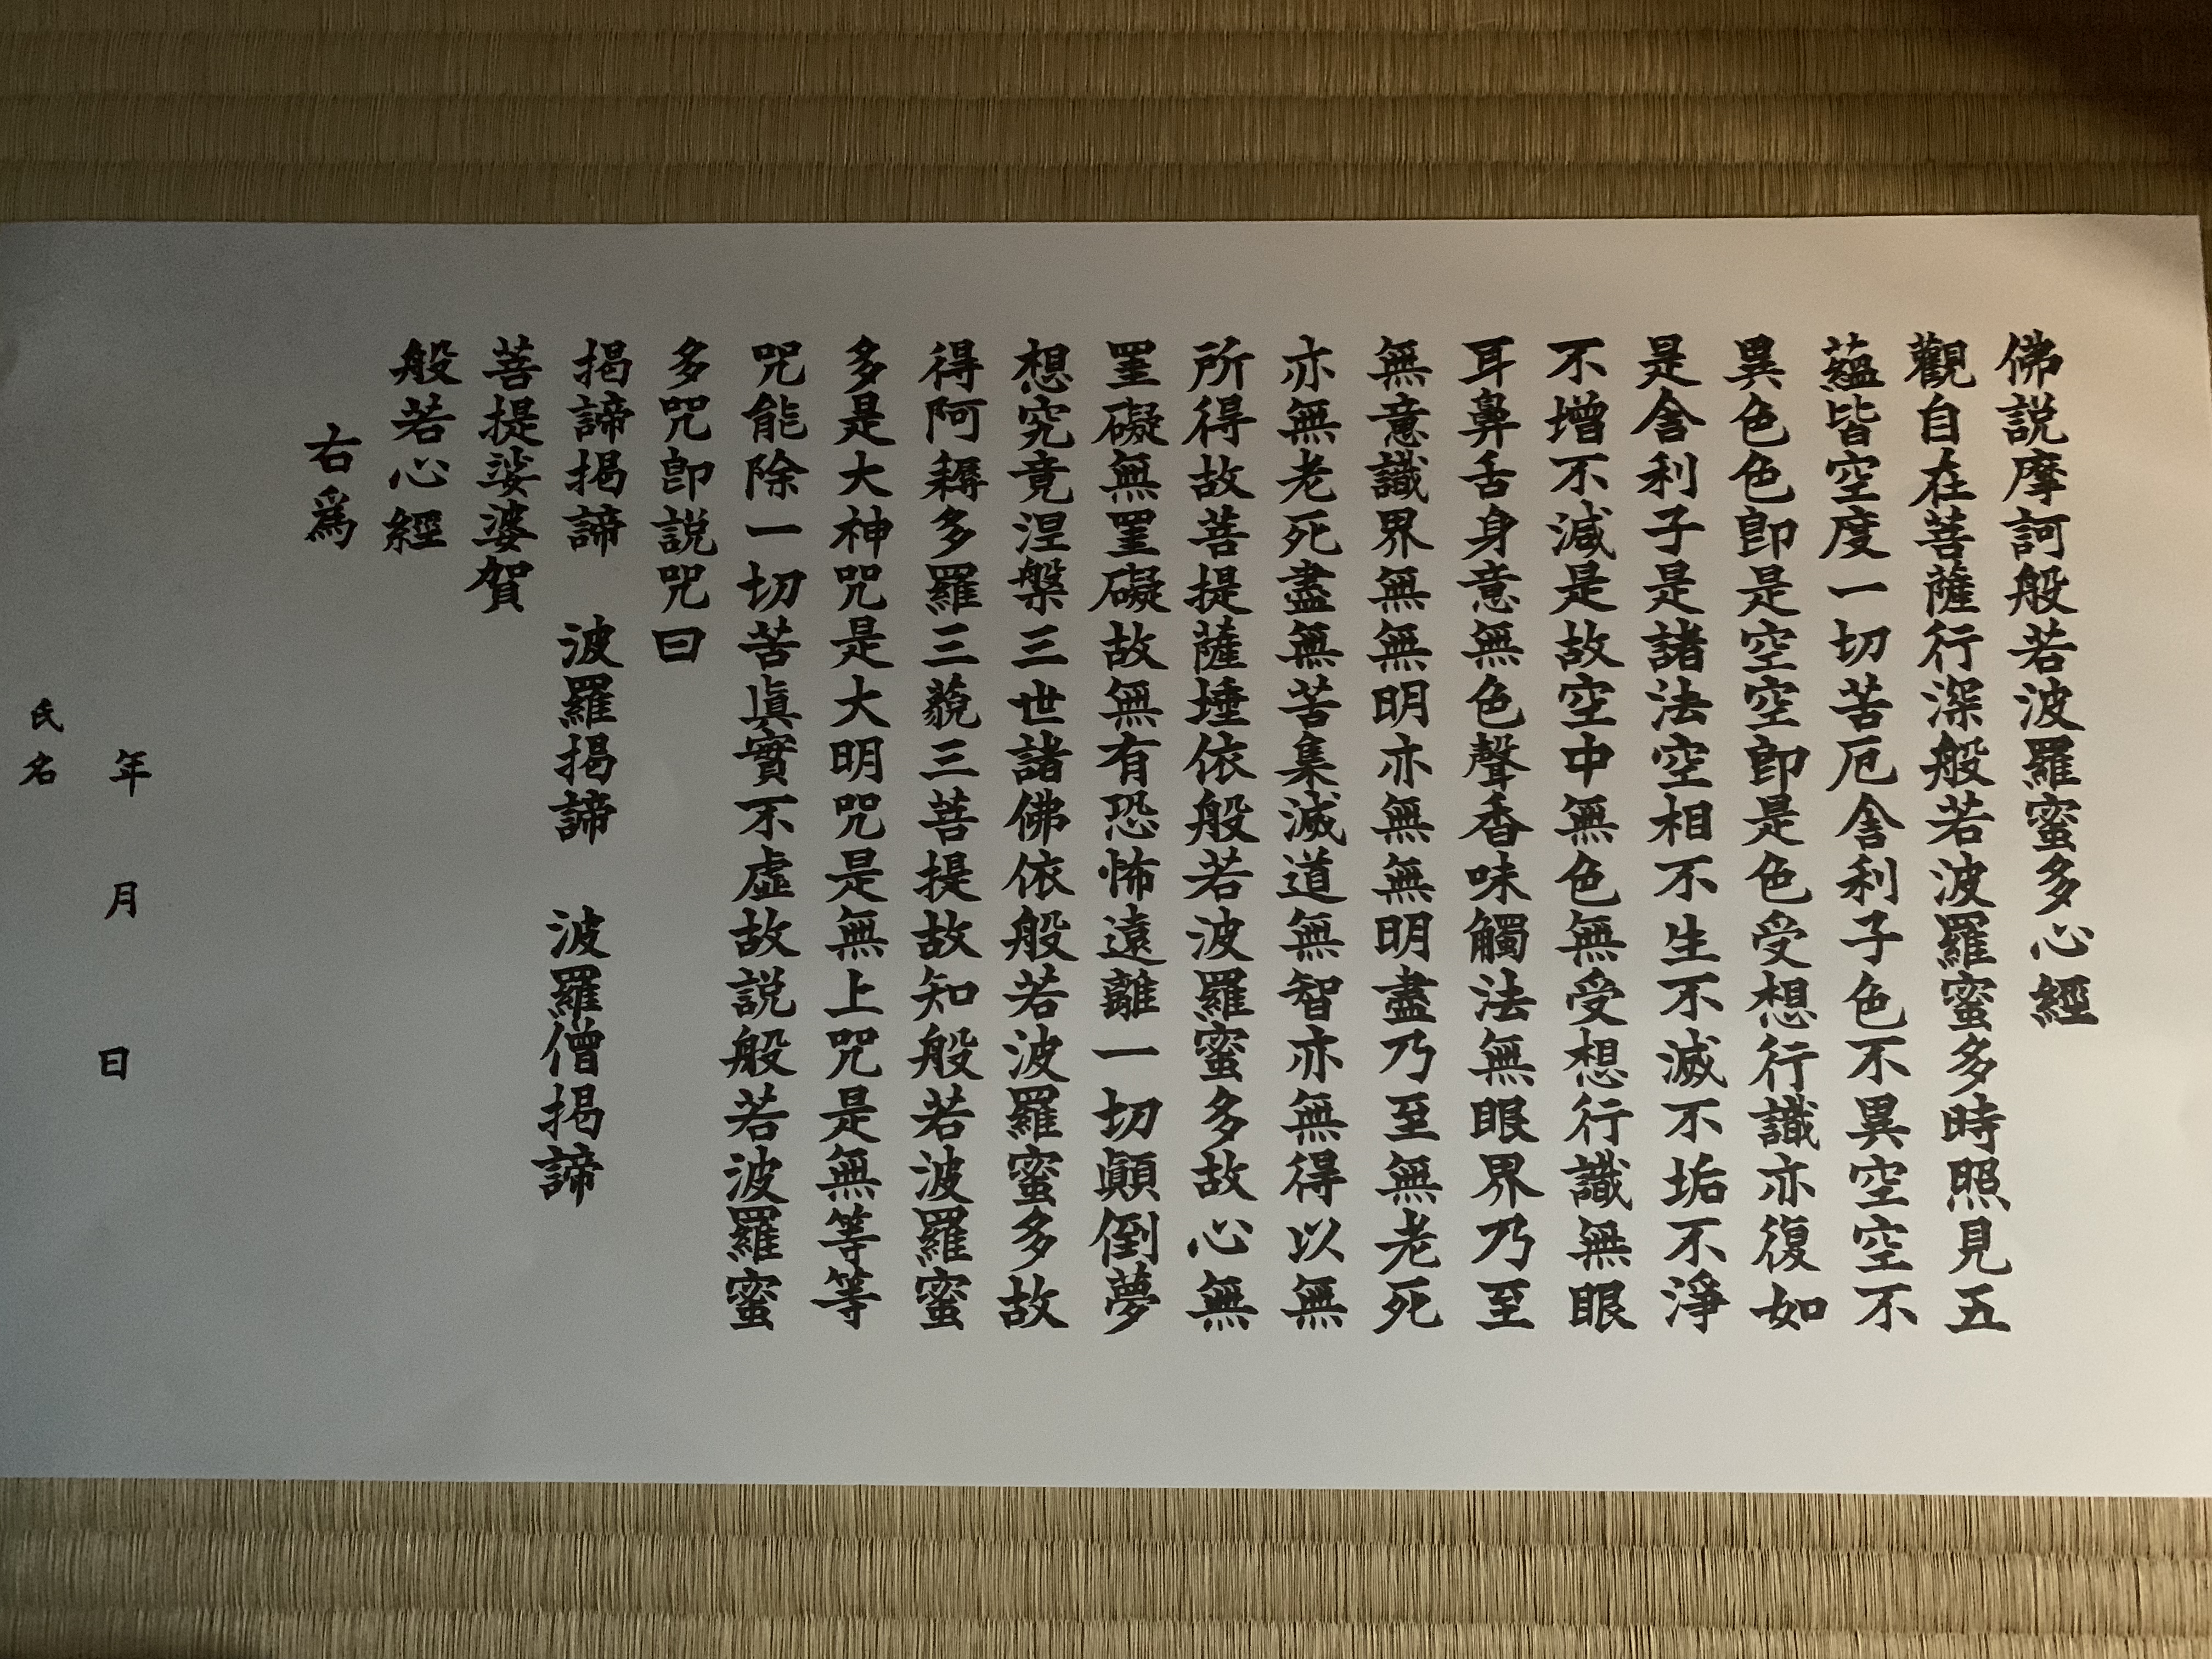 佛説摩訶般若波羅蜜多心經
觀自在菩薩行深般若波羅蜜多時照見五
蘊皆空度一切苦厄舎利子色不異空空不
異色色即是空空即是色受想行識亦復如
是舎利子是諸法空相不生不滅不垢不淨
不増不減是故空中無色無受想行識無眼
耳鼻舌身意無色聲香味觸法無眼界乃至
無意識界無無明亦無無明盡乃至無老死
亦無老死盡無苦集滅道無智亦無得以無
所得故菩提薩埵依般若波羅蜜多故心無
罣礙無罣礙故無有恐怖遠離一切顚倒夢
想究竟涅槃三世諸佛依般若波羅蜜多故
得阿耨多羅三藐三菩提故知般若波羅蜜
多是大神咒是大明咒是無上咒是無等等
咒能除一切苦眞實不虛故説般若波羅蜜
多咒即説咒曰
揭諦揭諦　波羅揭諦　波羅僧揭諦
菩提娑婆賀
般若心經
右爲
年　月　日
氏名